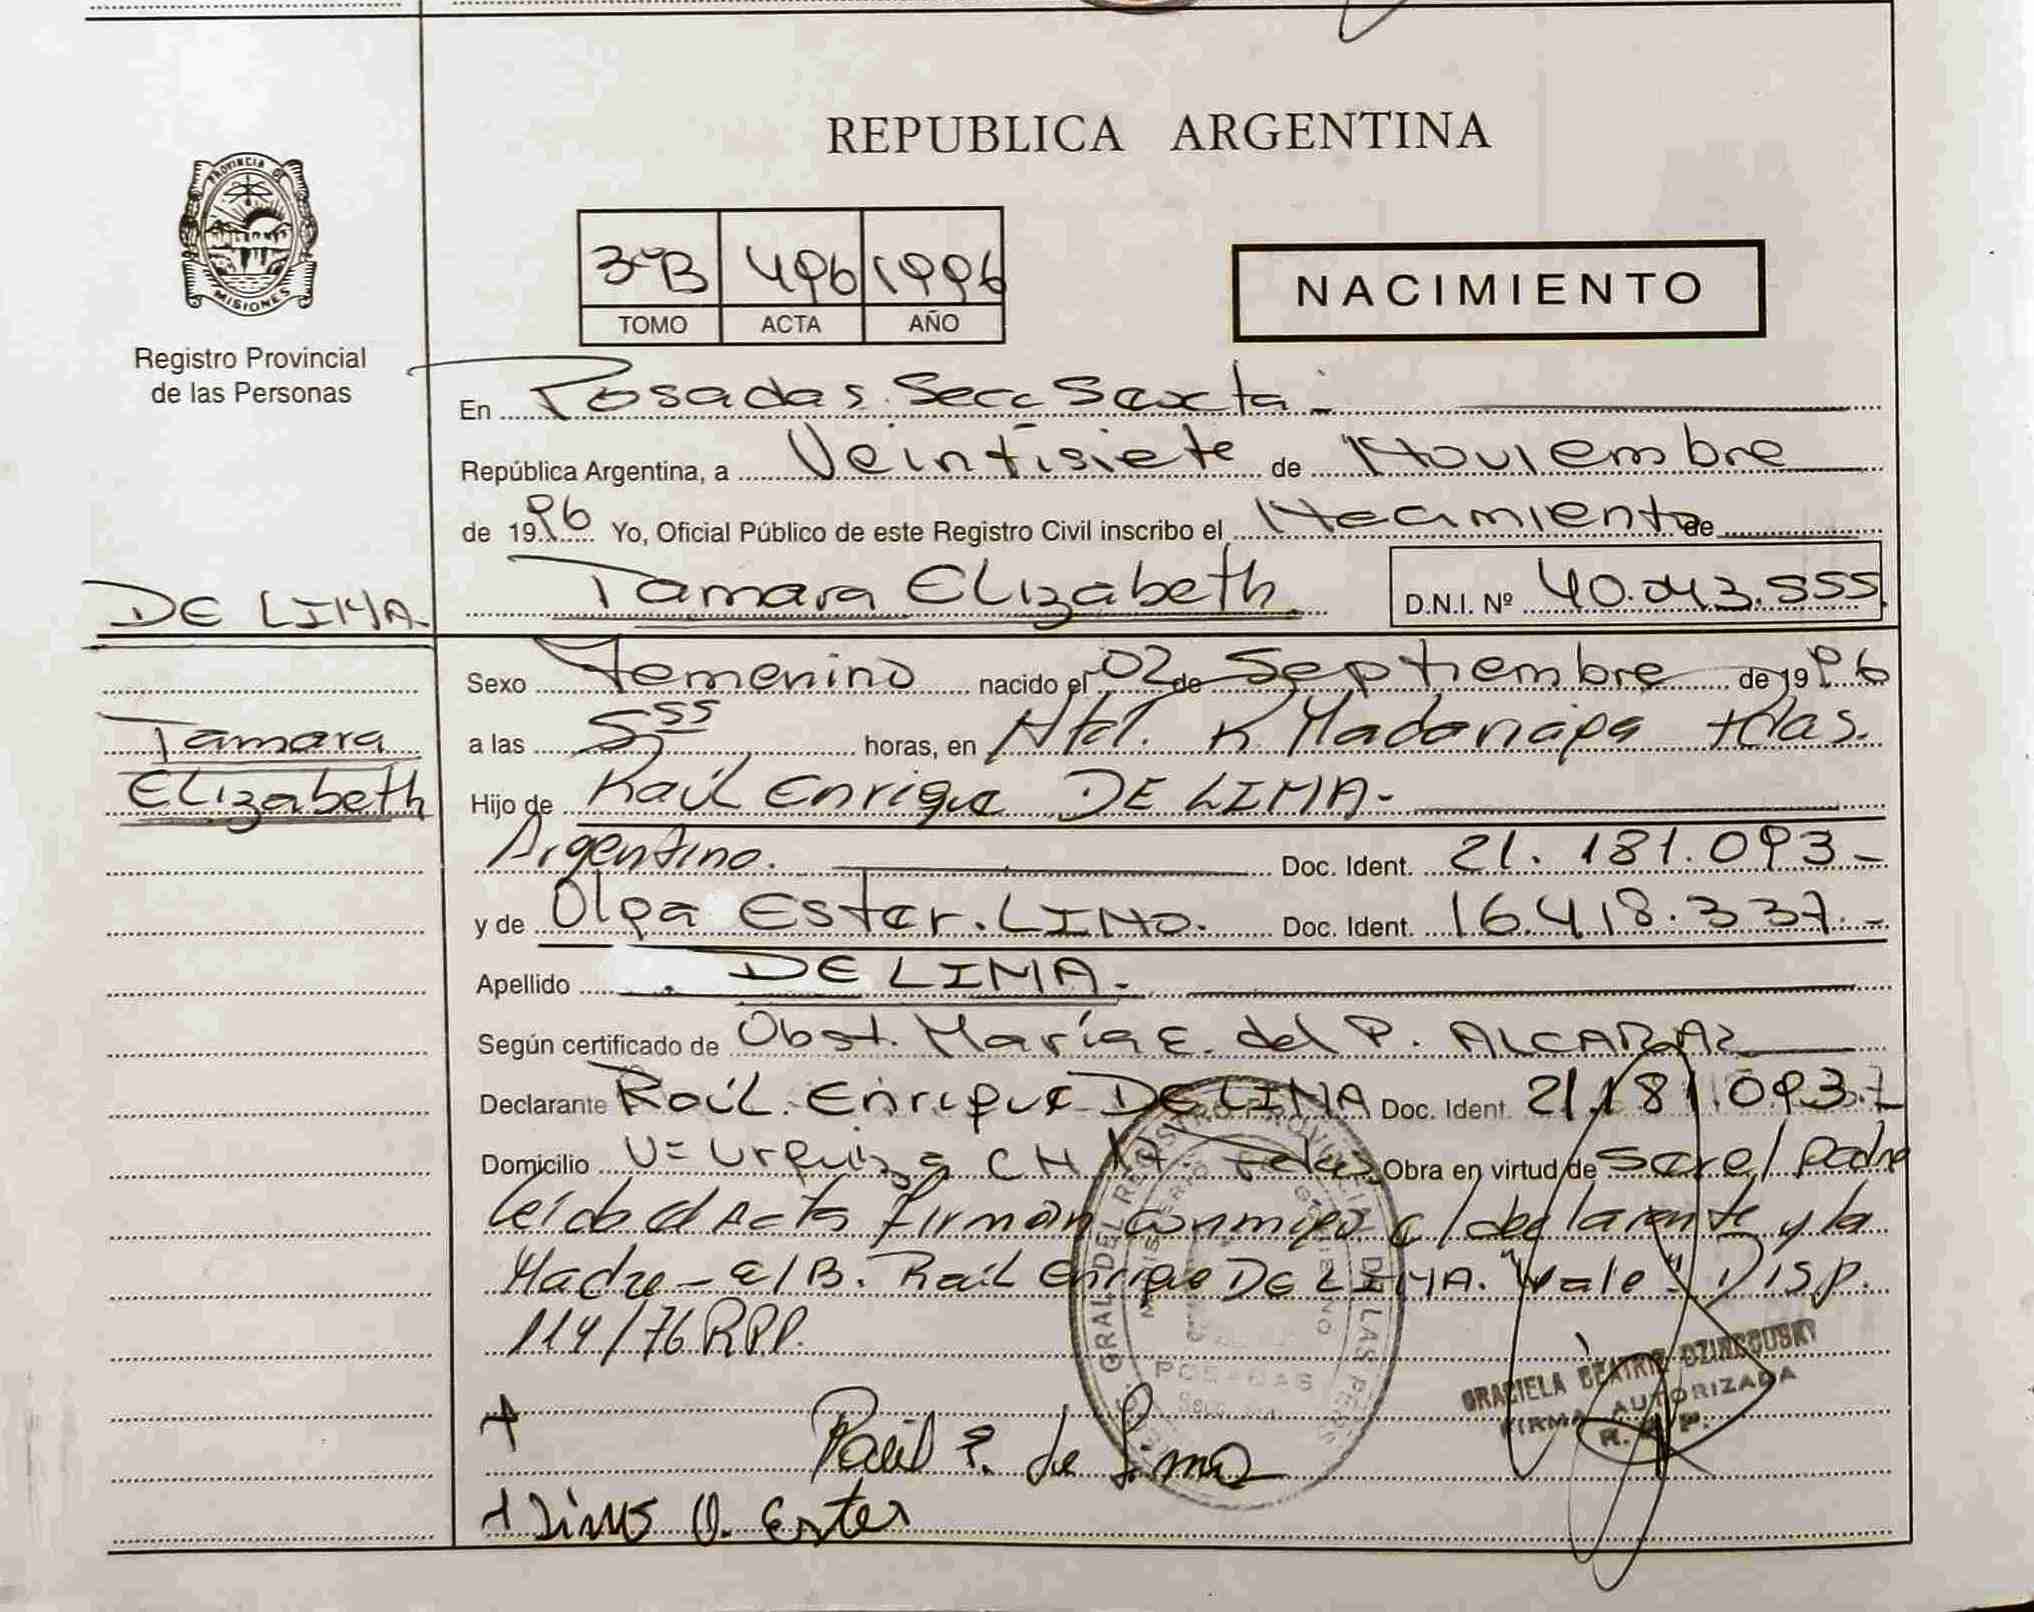 REPUBLICA ARGENTINA
PROVINCIA DE
MISIONES
Registro Provincial
de las Personas
3ºB 496 1996
TOMO ACTA AÑO
NACIMIENTO
En Posadas. Secc Sexta.
República Argentina, a Veintisiete de Noviembre
de 1996 Yo, Oficial Público de este Registro Civil inscribo el Nacimiento de
Tamara Elizabeth. D.N.I. Nº 40.043.555
DE LIMA.
Tamara
Elizabeth
Sexo Femenino nacido el 02 de Septiembre de 1996
a las 5 55 horas, en Htal. R Madariaga Pdas.
Hijo de Raúl Enrique DE LIMA.
Argentino. Doc. Ident. 21.181.093.-
y de Olga Ester. LINO. Doc. Ident. 16.418.337.-
Apellido DE LIMA.
Según certificado de Obst. María E. del P. ALCARAZ
Declarante Raúl. Enrique DE LIMA Doc. Ident. 21.181.093.
Domicilio Urquiza CH 17. Pdas. Obra en virtud de ser el padre
leída el Acta firman conmigo el declarante y la
Madre - E/B. Raúl Enrique DE LIMA. "Vale". Disp.
114/76 RPP.
POSADAS
GRACIELA BEATRIZ
FIRMA AUTORIZADA
R. P. P.
Raúl E. de Lima
Lino O. Ester